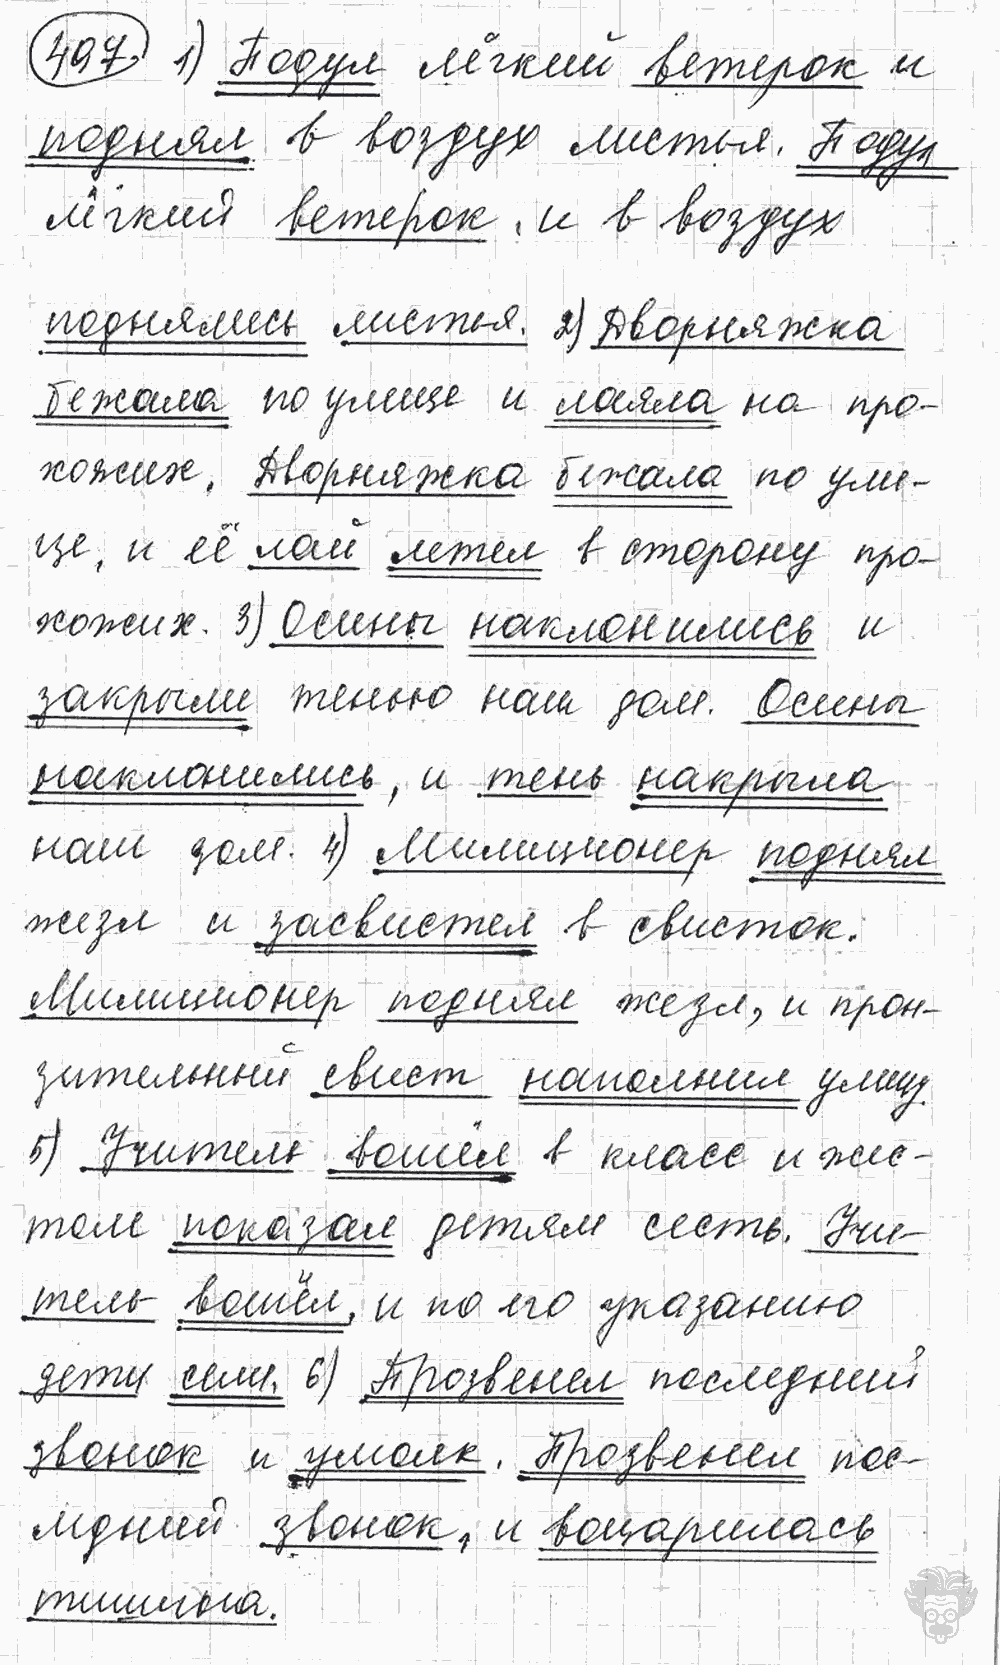 497. 1) Подул лёгкий ветерок и
поднял в воздух листья. Подул
лёгкий ветерок, и в воздух
поднялись листья. 2) Дворняжка
бежала по улице и лаяла на про-
хожих. Дворняжка бежала по ули-
це, и её лай летел в сторону про-
хожих. 3) Осины наклонились и
закрыли тенью наш дом. Осины
наклонились, и тень накрыла
наш дом. 4) Милиционер поднял
жезл и засвистел в свисток.
Милиционер поднял жезл, и прон-
зительный свист наполнил улицу.
5) Учитель вошёл в класс и жес-
том показал детям сесть. Учи-
тель вошёл, и по его указанию
дети сели. 6) Прозвенел последний
звонок и умолк. Прозвенел пос-
ледний звонок, и воцарилась
тишина.